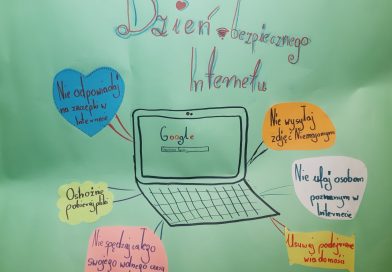 Dzień bezpiecznego
Internetu
Nie odpowiadaj
na zaczepki w
Internecie
Google
Nie wysyłaj
zdjęć Nieznajomym
Ostrożnie
pobieraj pliki
Nie ufaj osobom
poznanym w
Internecie
Nie spędzaj całego
swojego wolnego czasu
Usuwaj podejrzane
wiadomości